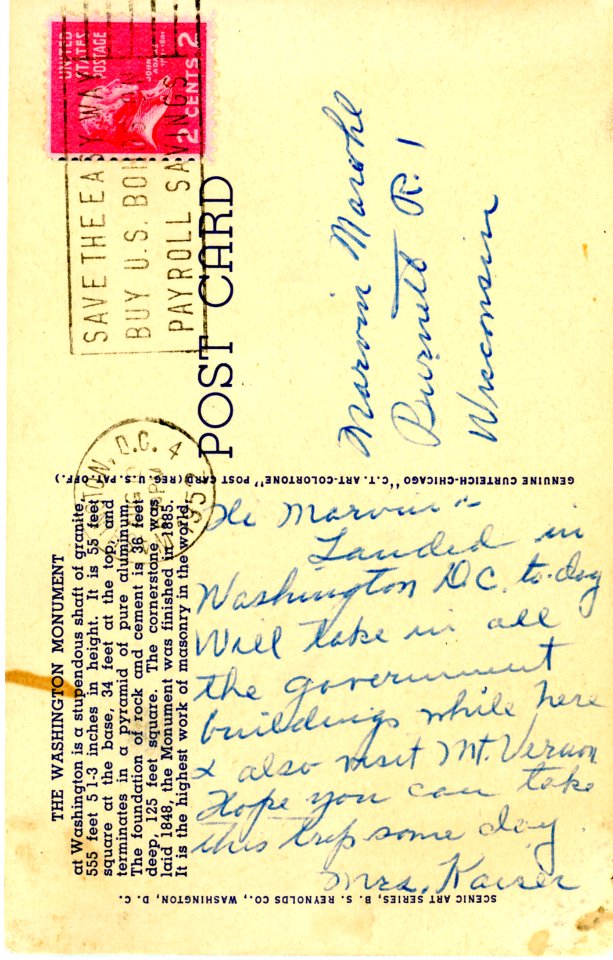 THE WASHINGTON MONUMENT
at Washington is a stupendous shaft of granite,
555 feet 5 1-3 inches in height. It is 55 feet
square at the base, 34 feet at the top, and
terminates in a pyramid of pure aluminum.
The foundation of rock and cement is 36 feet
deep, 125 feet square. The cornerstone was
laid 1848, the Monument was finished in 1885.
It is the highest work of masonry in the world.
POST CARD
UNITED
STATES
POSTAGE
JOHN
ADAMS
2 CENTS 2
SAVE THE EASY WAY
BUY U.S. BON
PAYROLL SAVINGS
TON, D.C. 4
PM
195
Hi Marvin
Landed in
Washington D.C. to-day
Will take in all
the government
buildings while here
& also visit Mt. Vernon
Hope you can take
this trip some day
Mrs. Kaiser
Marvin
Burnett R. 1
Wisconsin
GENUINE CURTEICH-CHICAGO "C.T. ART-COLORTONE" POST CARD (REG. U.S. PAT. OFF.)
SCENIC ART SERIES, B. S. REYNOLDS CO., WASHINGTON, D. C.